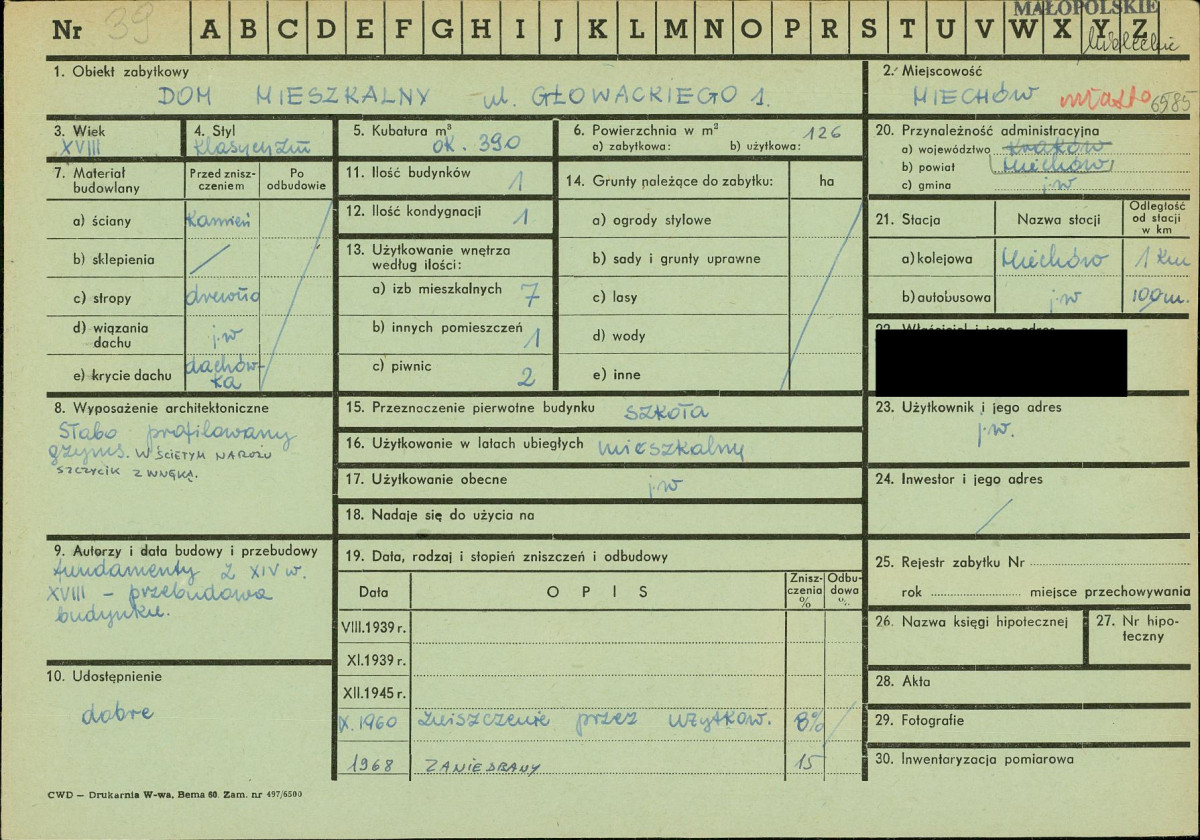 MAŁOPOLSKIE
Nr 39 A B C D E F G H I J K L M N O P R S T U V W X Y Z
1. Obiekt zabytkowy
DOM MIESZKALNY ul. GŁOWACKIEGO 1.
2. Miejscowość
MIECHÓW miasto 6585
3. Wiek
XVIII
4. Styl
klasycyzm
5. Kubatura m³
ok. 390
6. Powierzchnia w m² 126
a) zabytkowa: b) użytkowa:
20. Przynależność administracyjna
a) województwo Kraków
b) powiat Miechów
c) gmina j.w
7. Materiał budowlany
Przed znisz-
czeniem
Po
odbudowie
a) ściany kamień
b) sklepienia /
c) stropy drewno
d) wiązania
dachu j.w
e) krycie dachu dachów-
ka
11. Ilość budynków 1
12. Ilość kondygnacji 1
13. Użytkowanie wnętrza
według ilości:
a) izb mieszkalnych 7
b) innych pomieszczeń 1
c) piwnic 2
14. Grunty należące do zabytku: ha
a) ogrody stylowe
b) sady i grunty uprawne
c) lasy
d) wody
e) inne
21. Stacja Nazwa stacji
Odległość
od stacji
w km
a) kolejowa Miechów 1 km
b) autobusowa j.w 100m.
22. Właściciel i jego adres
8. Wyposażenie architektoniczne
Słabo profilowany
gzyms. W ŚCIĘTYM NAROŻU
SZCZYCIK Z WNĘKĄ.
15. Przeznaczenie pierwotne budynku SZKOŁA
16. Użytkowanie w latach ubiegłych mieszkalny
17. Użytkowanie obecne j.w
18. Nadaje się do użycia na
23. Użytkownik i jego adres
j.w.
24. Inwestor i jego adres
/
9. Autorzy i data budowy i przebudowy
fundamenty z XIV w.
XVIII – przebudowa
budynku.
10. Udostępnienie
dobre
19. Data, rodzaj i stopień zniszczeń i odbudowy
Data OPIS
Znisz-
czenia
%
Odbu-
dowa
%
VIII.1939 r.
XI.1939 r.
XII.1945 r.
IX.1960 zniszczenie przez użytkow. 8%
1968 ZANIEDBANY 15
25. Rejestr zabytku Nr
rok miejsce przechowywania
26. Nazwa księgi hipotecznej
27. Nr hipo-
teczny
28. Akta
29. Fotografie
30. Inwentaryzacja pomiarowa
CWD — Drukarnia W-wa, Bema 60. Zam. nr 497/6500